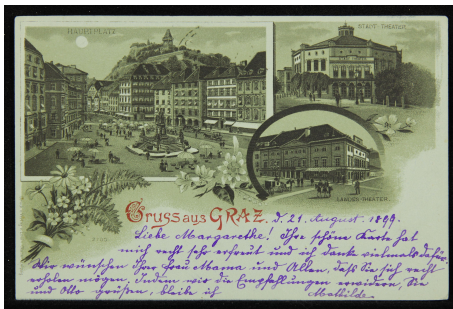 HAUPTPLATZ
STADT-THEATER.
LANDES-THEATER.
Gruss aus GRAZ.
d. 21. August 1899.
Liebe Margarethe! Ihre schöne Karte hat
mich recht sehr erfreut und ich danke vielmals dafür.
Wir wünschen Ihrer Frau Mama und Allen, daß Sie sich recht
erholen mögen. Indem wir die Empfehlungen erwidern, Sie
und Otto grüßen, bleibe ich
Mathilde.